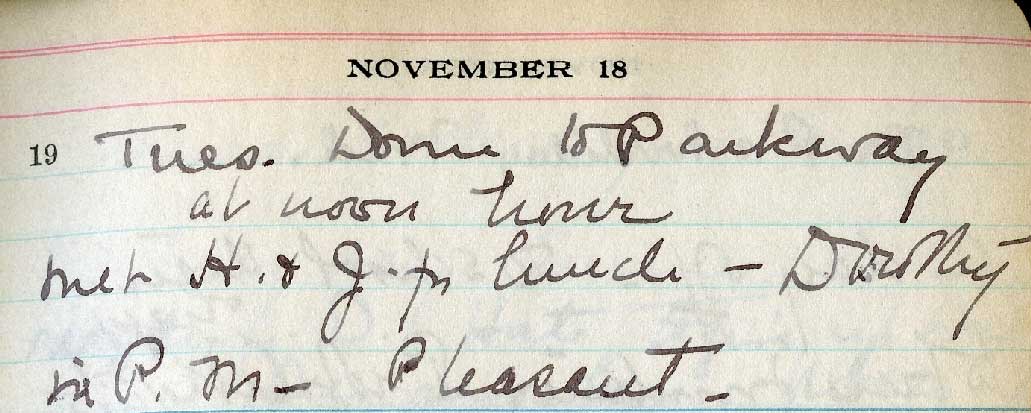 NOVEMBER 18
19 Tues. Down to Parkway
at noon hour
met H. & J. for lunch - Dorothy
in P. M. - Pleasant -